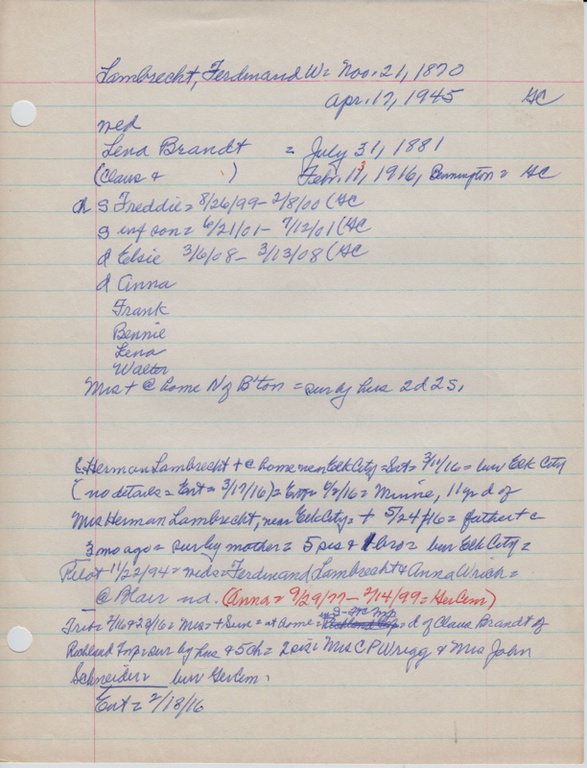 Lambrecht, Ferdinand W = Nov. 21, 1870
Apr. 17, 1945 GC
wed
Lena Brandt = July 31, 1881
(Claus + ) Febr. 1, 1916, Bennington = GC
ch S Freddie = 8/26/99 - 2/8/00 (GC
S inf son = 6/21/01 - 7/12/01 (GC
d Elsie 3/6/08 - 3/13/08 (GC
d Anna
Frank
Bennie
Lena
Walter
Mrs + @ home N of B'ton = sur by hus 2d 2s.
Herman Lambrecht + @ home near Elk City = Sat = 3/11/16 = bur Elk City
(no details = Ent = 3/17/16) = Ent = 6/2/16 = Minnie, 11 yr d of
Mrs Herman Lambrecht, near Elk City = + 5/24/16 = father +
3 mo ago = sur by mother = 5 sis + 1 bro = bur Elk City =
Pilot 11/22/94 = weds = Ferdinand Lambrecht + Anna Wrich =
@ Blair nd. (Anna = 9/29/77 - 2/14/99 = Ger Cem)
Trib = = Mrs + Sun = at home = d of Claus Brandt of
Richland = sur by hus + 5 ch = 2 sis = Mrs C P Wrigg + Mrs John
Schneider = bur Ger Cem.
Ent = 2/18/16